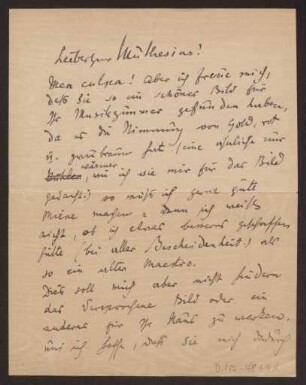 Lieber Herr Muthesius!
Mea culpa! Aber ich freue mich,
daß Sie so ein schönes Bild für
Ihr Musikzimmer gefunden haben,
da es die Stimmung von Gold, rot
u. graubraun hat, (eine ähnliche nur
wärmer, wie ich sie mir für das Bild
gedacht) so muß ich gerne gute
Miene machen; denn ich weiß
nicht, ob ich etwas besseres geschaffen
hätte (bei aller Bescheidenheit) als
so ein alter Maestro.
Dies soll mich aber nicht hindern
das versprochene Bild oder ein
anderes für Ihr Haus zu
und ich hoffe, daß Sie mich dadurch